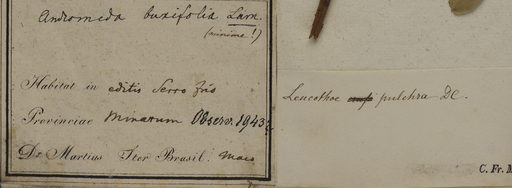 Andromeda buxifolia Lam.
(minime!)
Habitat in editis Serro frio
Provinciae Minarum Observ. 1943
Dr. Martius Iter Brasil. Maio
Leucothoe pulchra DC.
C. Fr. M